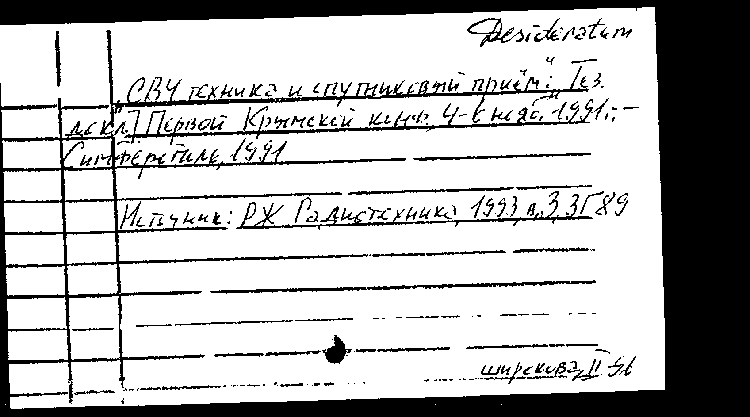 Desideratum
„СВЧ техника и спутниковый приём": Тез.
докл.] Первой Крымской конф., 4-6 нояб. 1991г. –
Симферополь, 1991
Источник: РЖ Радиотехника, 1993, в.3, 3Г89
широкова, II